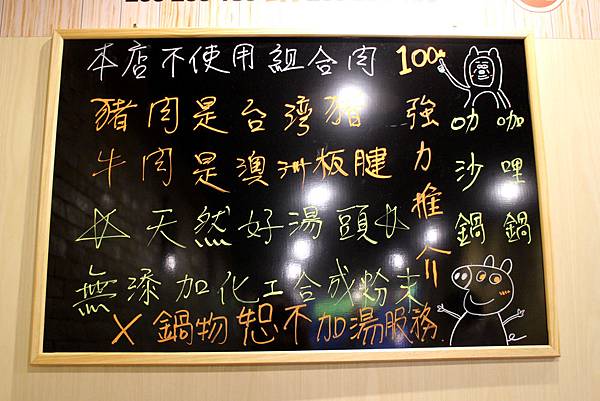 本店不使用組合肉
豬肉是台灣豬
牛肉是澳洲板腱
☆天然好湯頭☆
無添加化工合成粉末
×鍋物恕不加湯服務
100%
強力推介
叻沙鍋
咖哩鍋